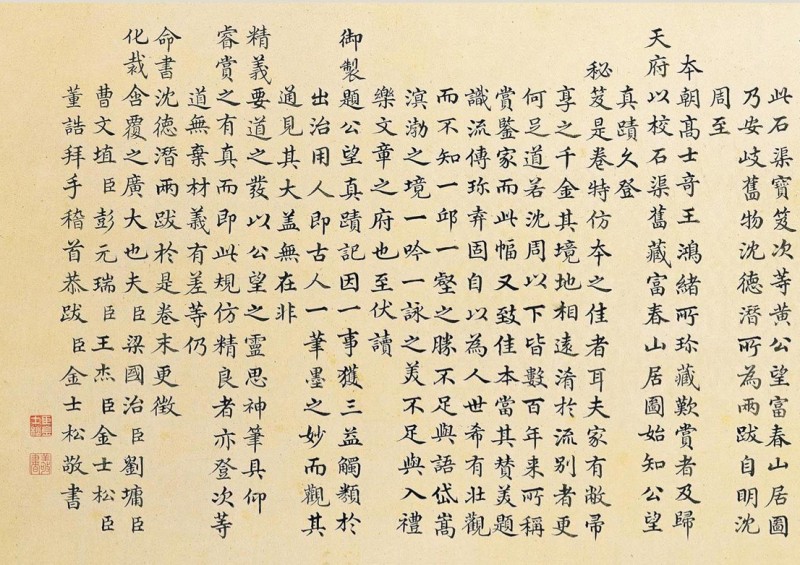 此石渠寶笈次等黃公望富春山居圖
乃安岐舊物沈德潛所為兩跋自明沈
周至
本朝高士奇王鴻緒所珍藏歎賞者及歸
天府以校石渠舊藏富春山居圖始知公望
真蹟久登
秘笈是卷特仿本之佳者耳夫家有敝帚
享之千金其境地相遠淆於流別者更
何足道若沈周以下皆數百年来所稱
賞鑒家而此幅又致佳本當其賛美題
識流傳珍弆固自以為人世希有壯觀
而不知一邱一壑之勝不足與語岱嵩
溟渤之境一吟一詠之美不足與入禮
樂文章之府也至伏讀
御製題公望真蹟記因一事獲三益觸類於
出治用人即古人一筆墨之妙而觀其
通見其大盖無在非
精義要道之發以公望之靈思神筆具仰
睿賞之有真而即此規仿精良者亦登次等
道無棄材義有差等仍
命書沈德潛兩跋於是卷末更徵
化裁含覆之廣大也夫臣梁國治臣劉墉臣
曹文埴臣彭元瑞臣王杰臣金士松臣
董誥拜手稽首恭跋 臣金士松敬書